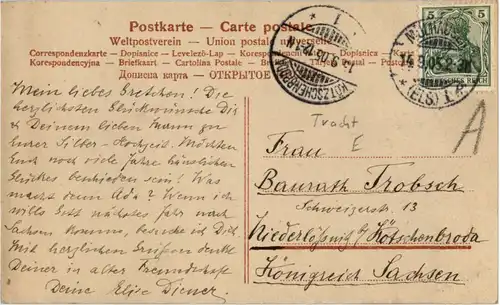 Postkarte - Carte postale
Weltpostverein - Union postale universelle
Correspondenzkarte - Dopisnice - Levelező-Lap - Korespondenčni - Dopisnica - Karta
Korespondencyjna - Briefkaart - Cartolina Postale - Tarjeta Postal - Dopisni
Дописна карта - ОТКРЫТОЕ
5 5
DEUTSCHES REICH
MÜLHAUSEN
14.9.05.2-3N.
(ELS) 1.
KÖTZSCHENBRODA
Tracht
E
A
Mein liebes Gretchen! Die
herzlichsten Glückwünsche Dir
& Deinem lieben Mann zu
Eurer Silber-Hochzeit. Möchten
Euch noch viele Jahre häuslichen
Glückes beschieden sein! Was
macht denn Ada? Wenn ich
wills Gott nächstes Jahr nach
Sachsen komme, besuche ich Dich.
Mit herzlichen Grüßen denkt
Deiner in alter Freundschaft
Deine Elise Diener.
Frau
Baurath Trobsch
Schweizerstr. 13
Niederlößnitz b/ Kötschenbroda
Königreich Sachsen